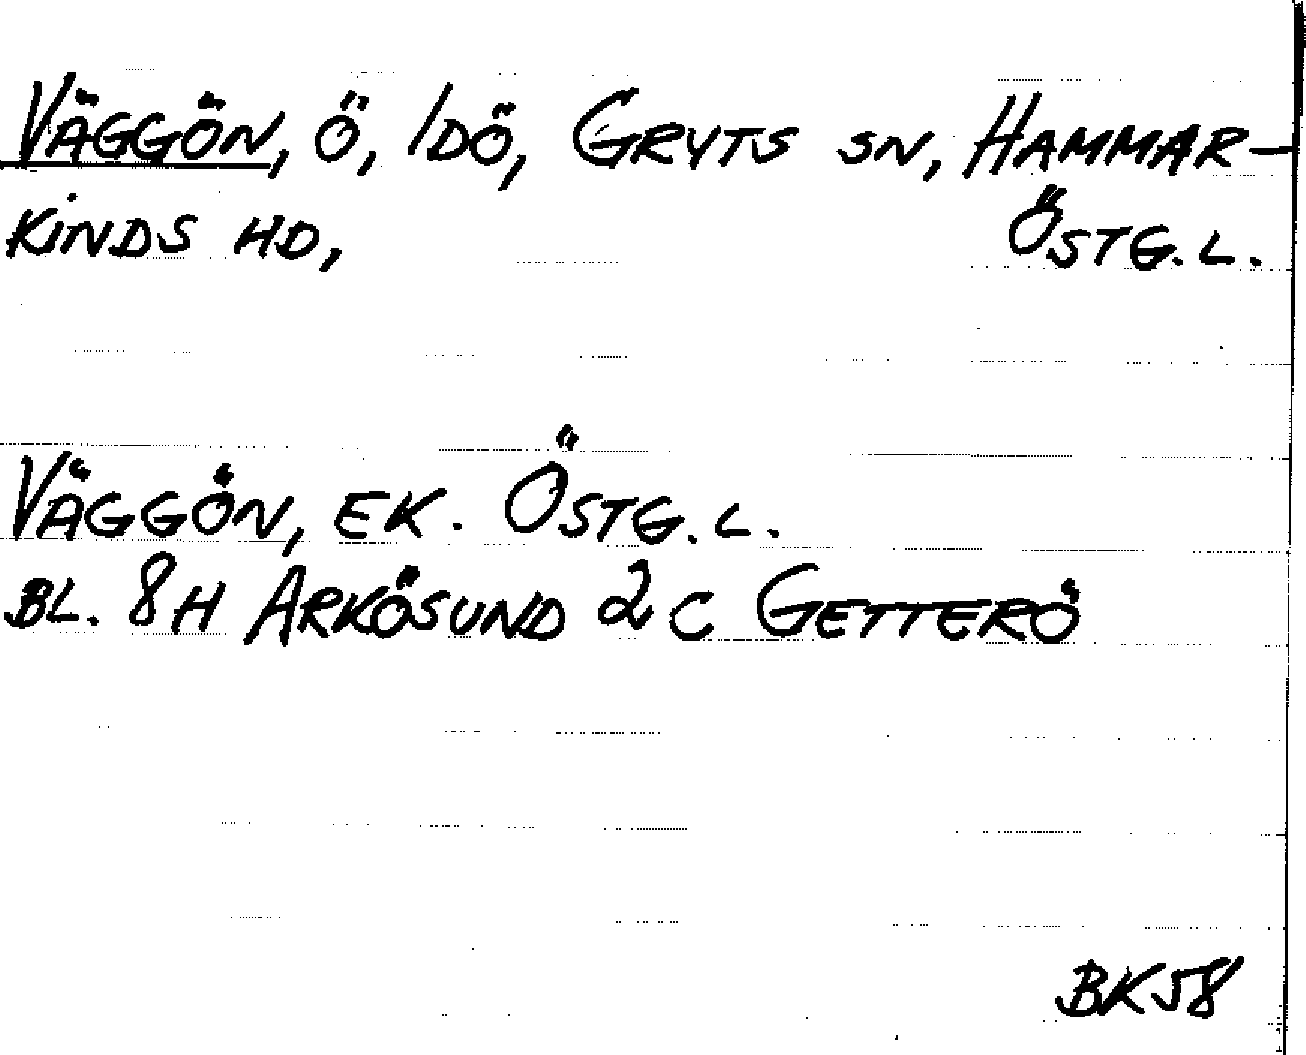 VÄGGÖN, Ö, IDÖ, GRYTS SN, HAMMAR-
KINDS HD, ÖSTG. L.
VÄGGÖN, EK. ÖSTG. L.
BL. 8H ARKÖSUND 2C GETTERÖ
BK58